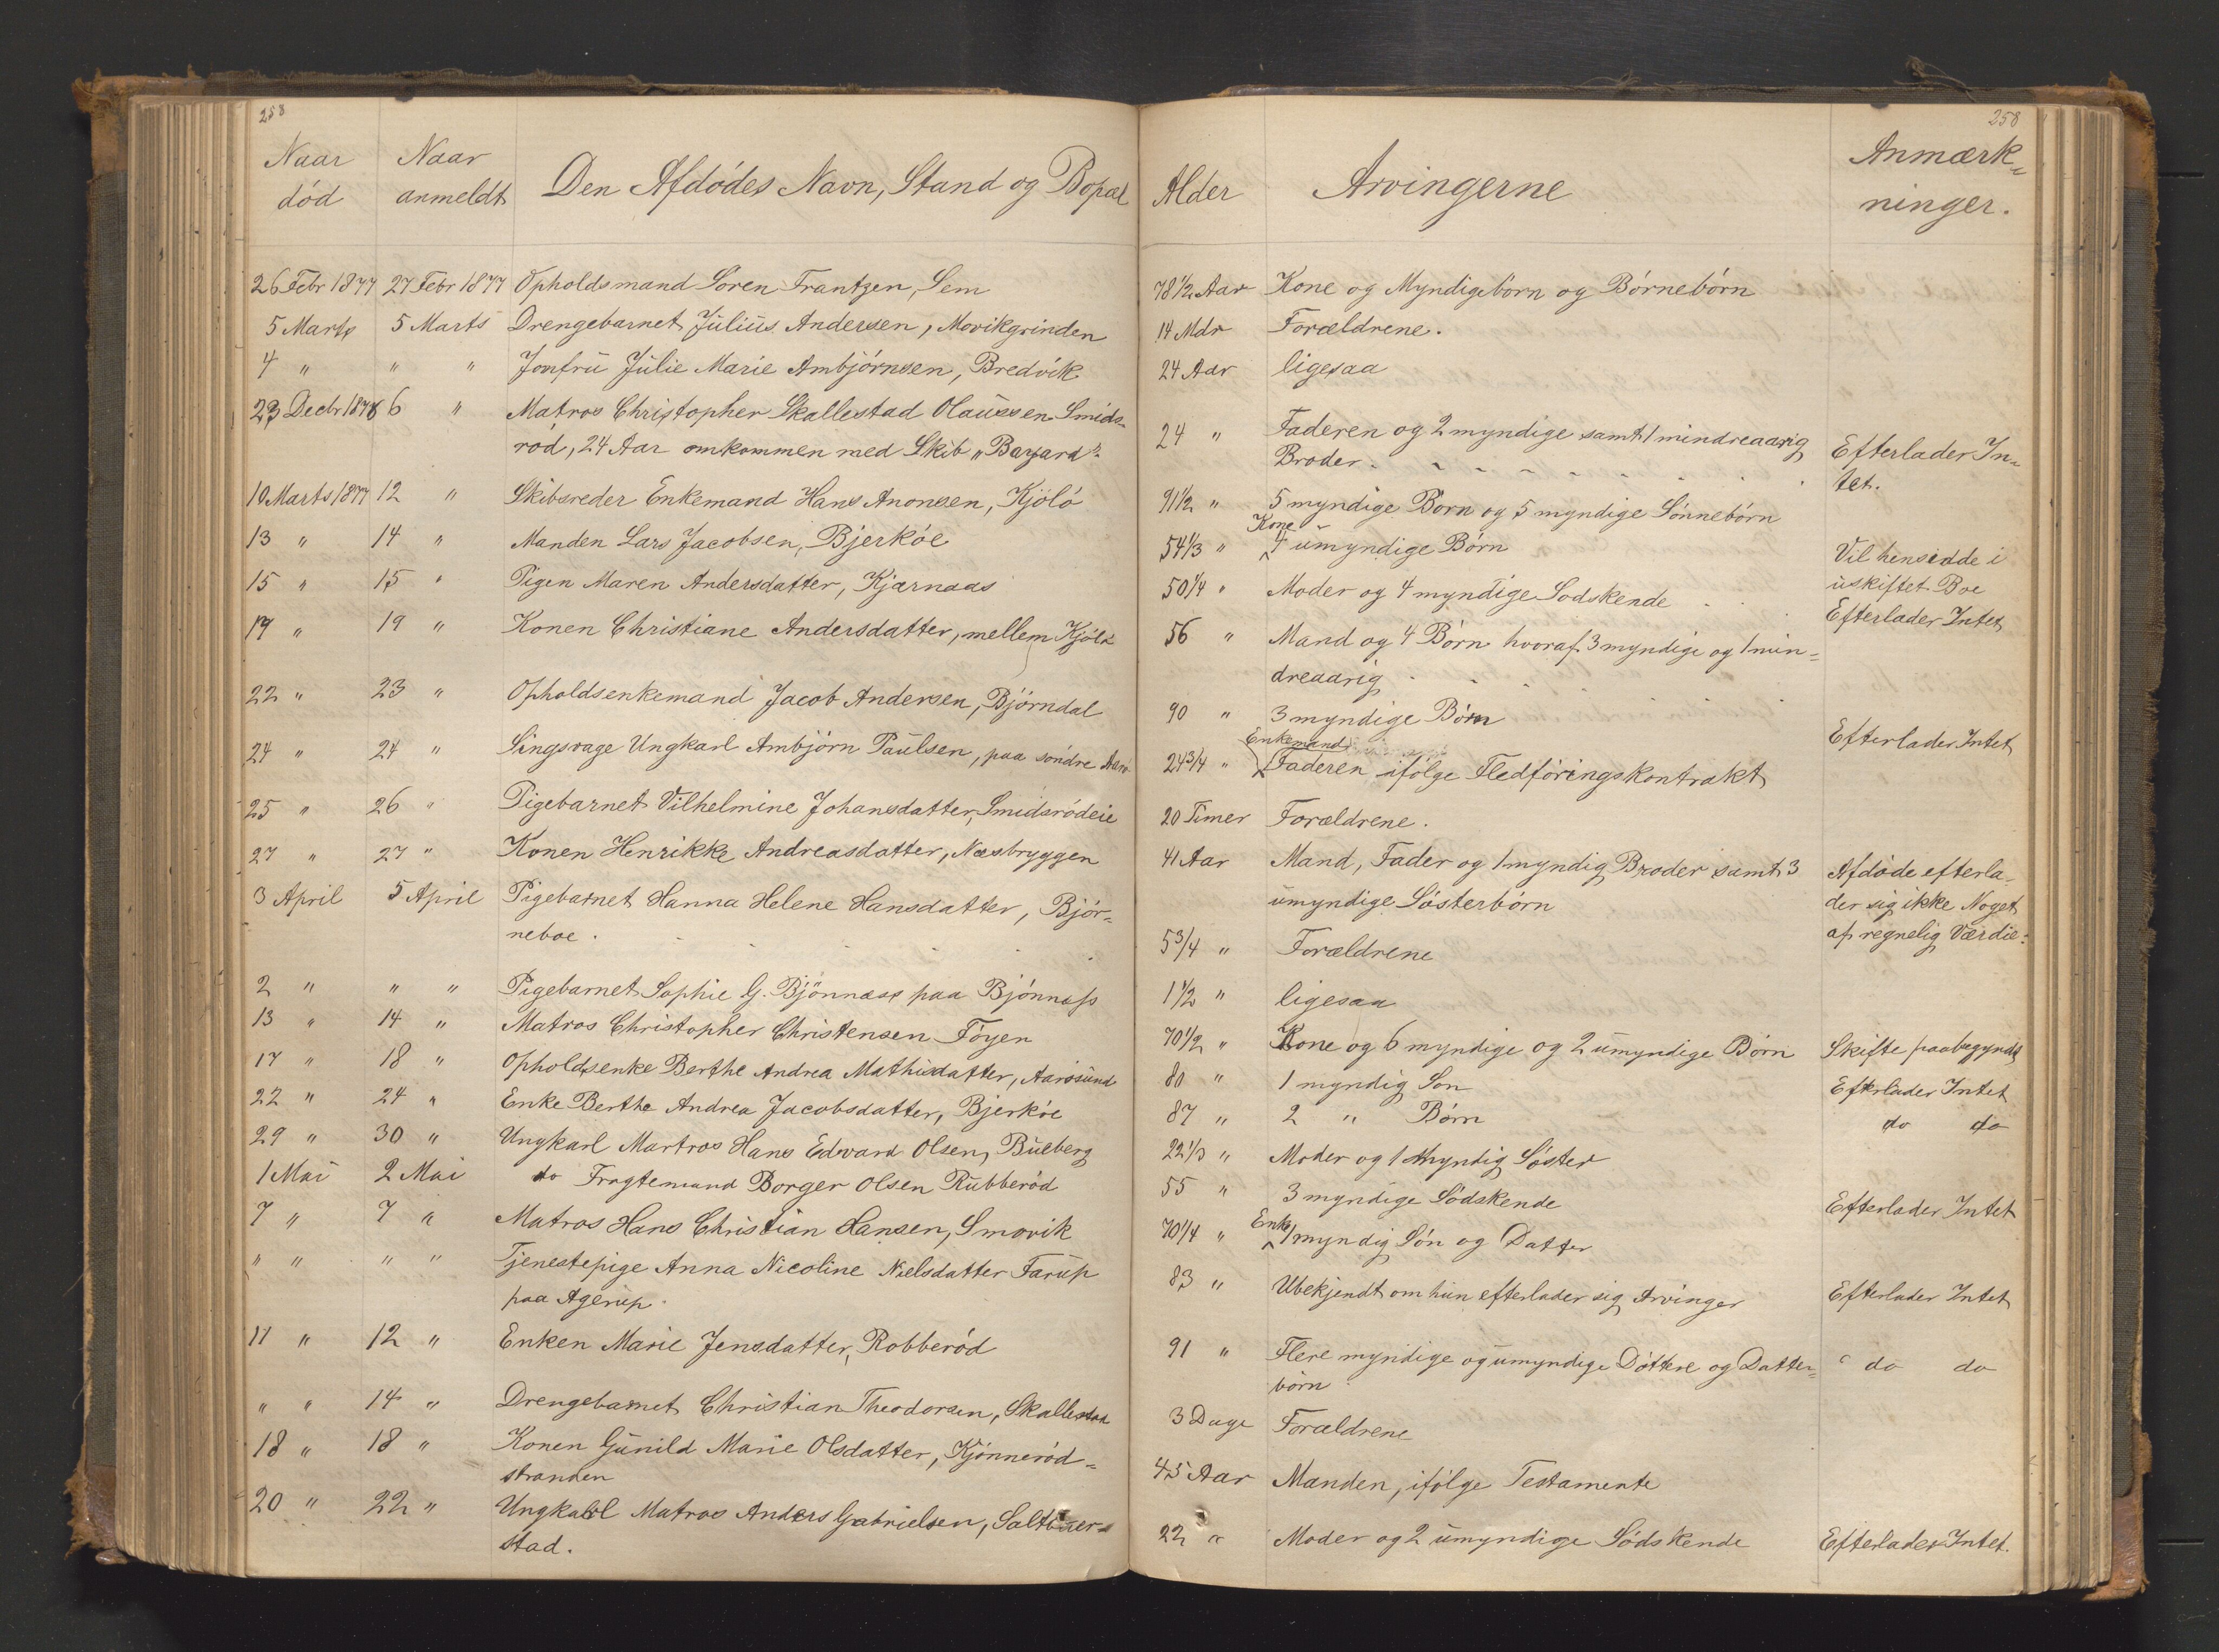 258
Naar
død
Naar
anmeldt
Den Afdødes Navn, Stand og Bopæl
26 Febr 1877 27 Febr 1877 Opholdsmand Søren Frantzen, Sem
5 Marts 5 Marts Drengebarnet Julius Andersen, Movikgrinden
4 " " " Jomfru Julie Marie Ambjørnsen, Bredvik
23 Decbr 1876 6 " Matros Christopher Skallestad Olaussen Smids-
rød, 24 Aar omkommen med Skib "Bayard".
10 Marts 1877 12 " Skibsreder Enkemand Hans Anonsen, Kjølø
13 " 14 " Manden Lars Jacobsen, Bjerkøe
15 " 15 " Pigen Maren Andersdatter, Kjærnaas
17 " 19 " Konen Christiane Andersdatter, mellem Kjølø
22 " 23 " Opholdsenkemand Jacob Andersen, Bjørndal
24 " 24 " Ungkarl Ambjørn Paulsen, paa søndre Aarø
25 " 26 " Pigebarnet Vilhelmine Johansdatter, Smidsrødeie
27 " 27 " Konen Henrikke Andreasdatter, Næsbryggen
3 April 5 April Pigebarnet Hanna Helene Hansdatter, Bjør-
neboe.
2 " " " Pigebarnet Sophie G. Bjønnæss paa Bjønnæss
13 " 14 " Matros Christopher Christensen Føyen
17 " 18 " Opholdsenke Berthe Andrea Mathisdatter, Aarøsund
22 " 24 " Enke Berthe Andrea Jacobsdatter, Bjerkøe
29 " 30 " Ungkarl Martros Hans Edward Olsen, Bueberg
1 Mai 2 Mai do Fragtemand Borger Olsen Rubberød
7 " 7 " Matros Hans Christian Hansen, Smovik
" " " " Tjenestepige Anna Nicoline Nielsdatter Farup
paa Agerup.
11 " 12 " Enken Marie Jensdatter, Robberød
" " 14 " Drengebarnet Christian Theodorsen, Skallestad
18 " 18 " Konen Gunild Marie Olsdatter, Kjønnerød-
stranden
20 " 22 " Ungkarl Matros Anders Gabrielsen, Saltbuer-
stad.
258
Alder
Arvingerne
Anmærk-
ninger.
78 1/2 Aar Kone og Myndigebørn og Børnebørn
14 Mdr Forældrene.
24 Aar ligesaa
24 " Faderen og 2 myndige samt 1 mindreaarig
Broder.
Efterlader In-
tet.
91 1/2 " 5 myndige Børn og 5 myndige Sønnebørn
Kone
54 1/3 " 4 umyndige Børn
Vil hensidde i
uskiftet Boe
50 1/4 " Moder og 4 myndige Sødskende
Efterlader Intet
56 " Mand og 4 Børn hvoraf 3 myndige og 1 min-
dreaarig
90 " 3 myndige Børn
Efterlader Intet
Enkemand
24 3/4 " Faderen ifølge Fledføringskontrakt
20 Timer Forældrene.
41 Aar Mand, Fader og 1 myndig Broder samt 3
umyndige Søsterbørn
Afdøde efterla-
der sig ikke Noget
af regnelig Værdie.
5 3/4 " Forældrene
1 1/2 " ligesaa
70 1/2 " Kone og 6 myndige og 2 umyndige Børn Skifte paabegyndt
80 " 1 myndig Søn Efterlader Intet
87 " 2 " Børn do do
22 1/3 " Moder og 1 Myndig Søster
55 " 3 myndige Sødskende Efterlader Intet
Enke
70 1/4 " 1 myndig Søn og Datter
83 " Ubekjendt om hun efterlader sig Arvinger Efterlader Intet
91 " Flere myndige og umyndige Døttere og Datter- do do
børn
3 Dage Forældrene
45 Aar Manden, ifølge Testamente
22 " Moder og 2 umyndige Sødskende Efterlader Intet.